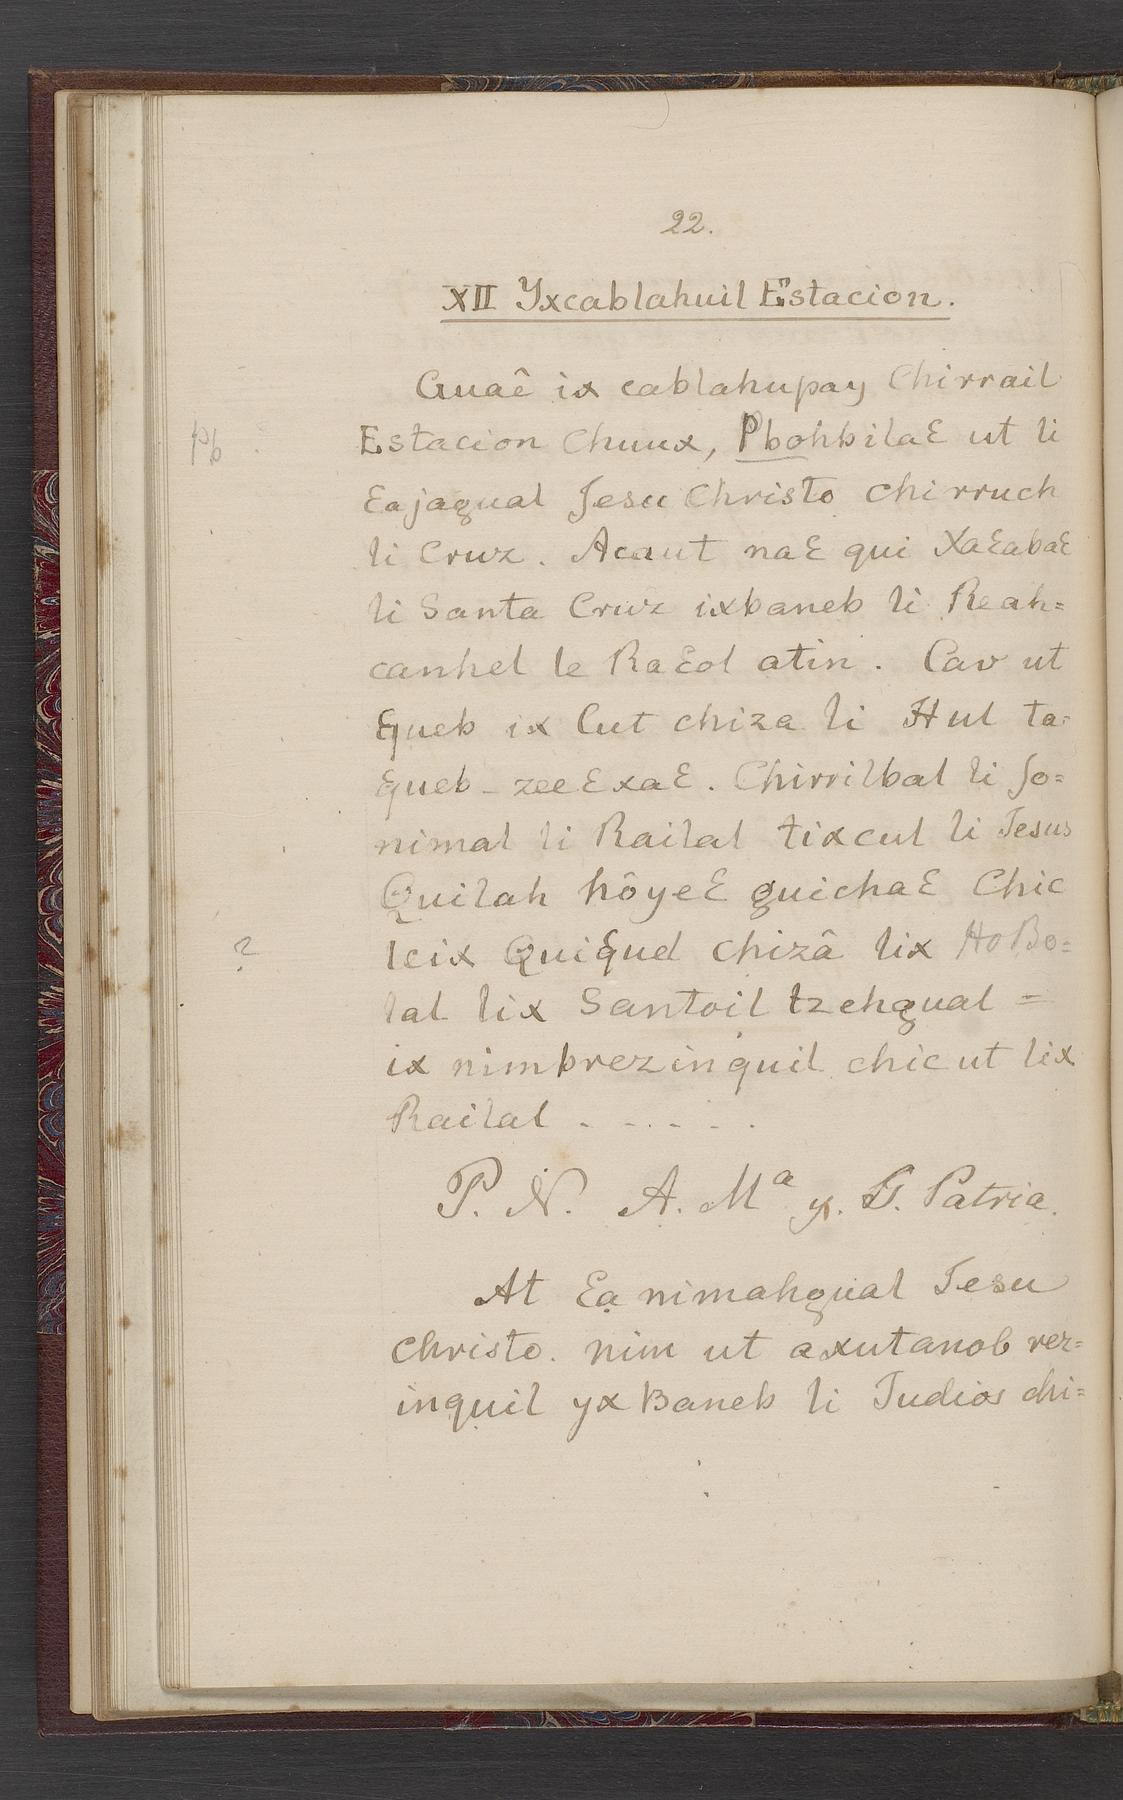 22.
XII Yxcablahuil Estacion.
Guaê ix cablahupay Chirrail
pb
Estacion Chuux, Pbohbilaꜫ ut li
ꜫajagual Jesu Christo chirruch
li Cruz. Acaut naꜫ qui Xaꜫabaꜫ
li Santa Cruz ixbaneb li Reah=
canhel le Raꜫol atin. Cav ut
ꜫqueb ix Cut chiza li Hul ta=
ꜫqueb - zeeꜫxaꜫ. Chirrilbal li Jo=
nimal li Railal tixcul li Jesus
Quilah hôyeꜫ guichaꜫ Chic
?
leix Quiꜫuel chizâ lix HoBo=
lal lix Santoil tzehgual =
ix nimbrezinquil chic ut lix
Railal - - - - - -
P. N. A. Mᵃ y. G. Patria.
At ꜫa nimahgual Jesu
Christo. nim ut axutanob rez=
inquil yx Baneb li Judios chi=